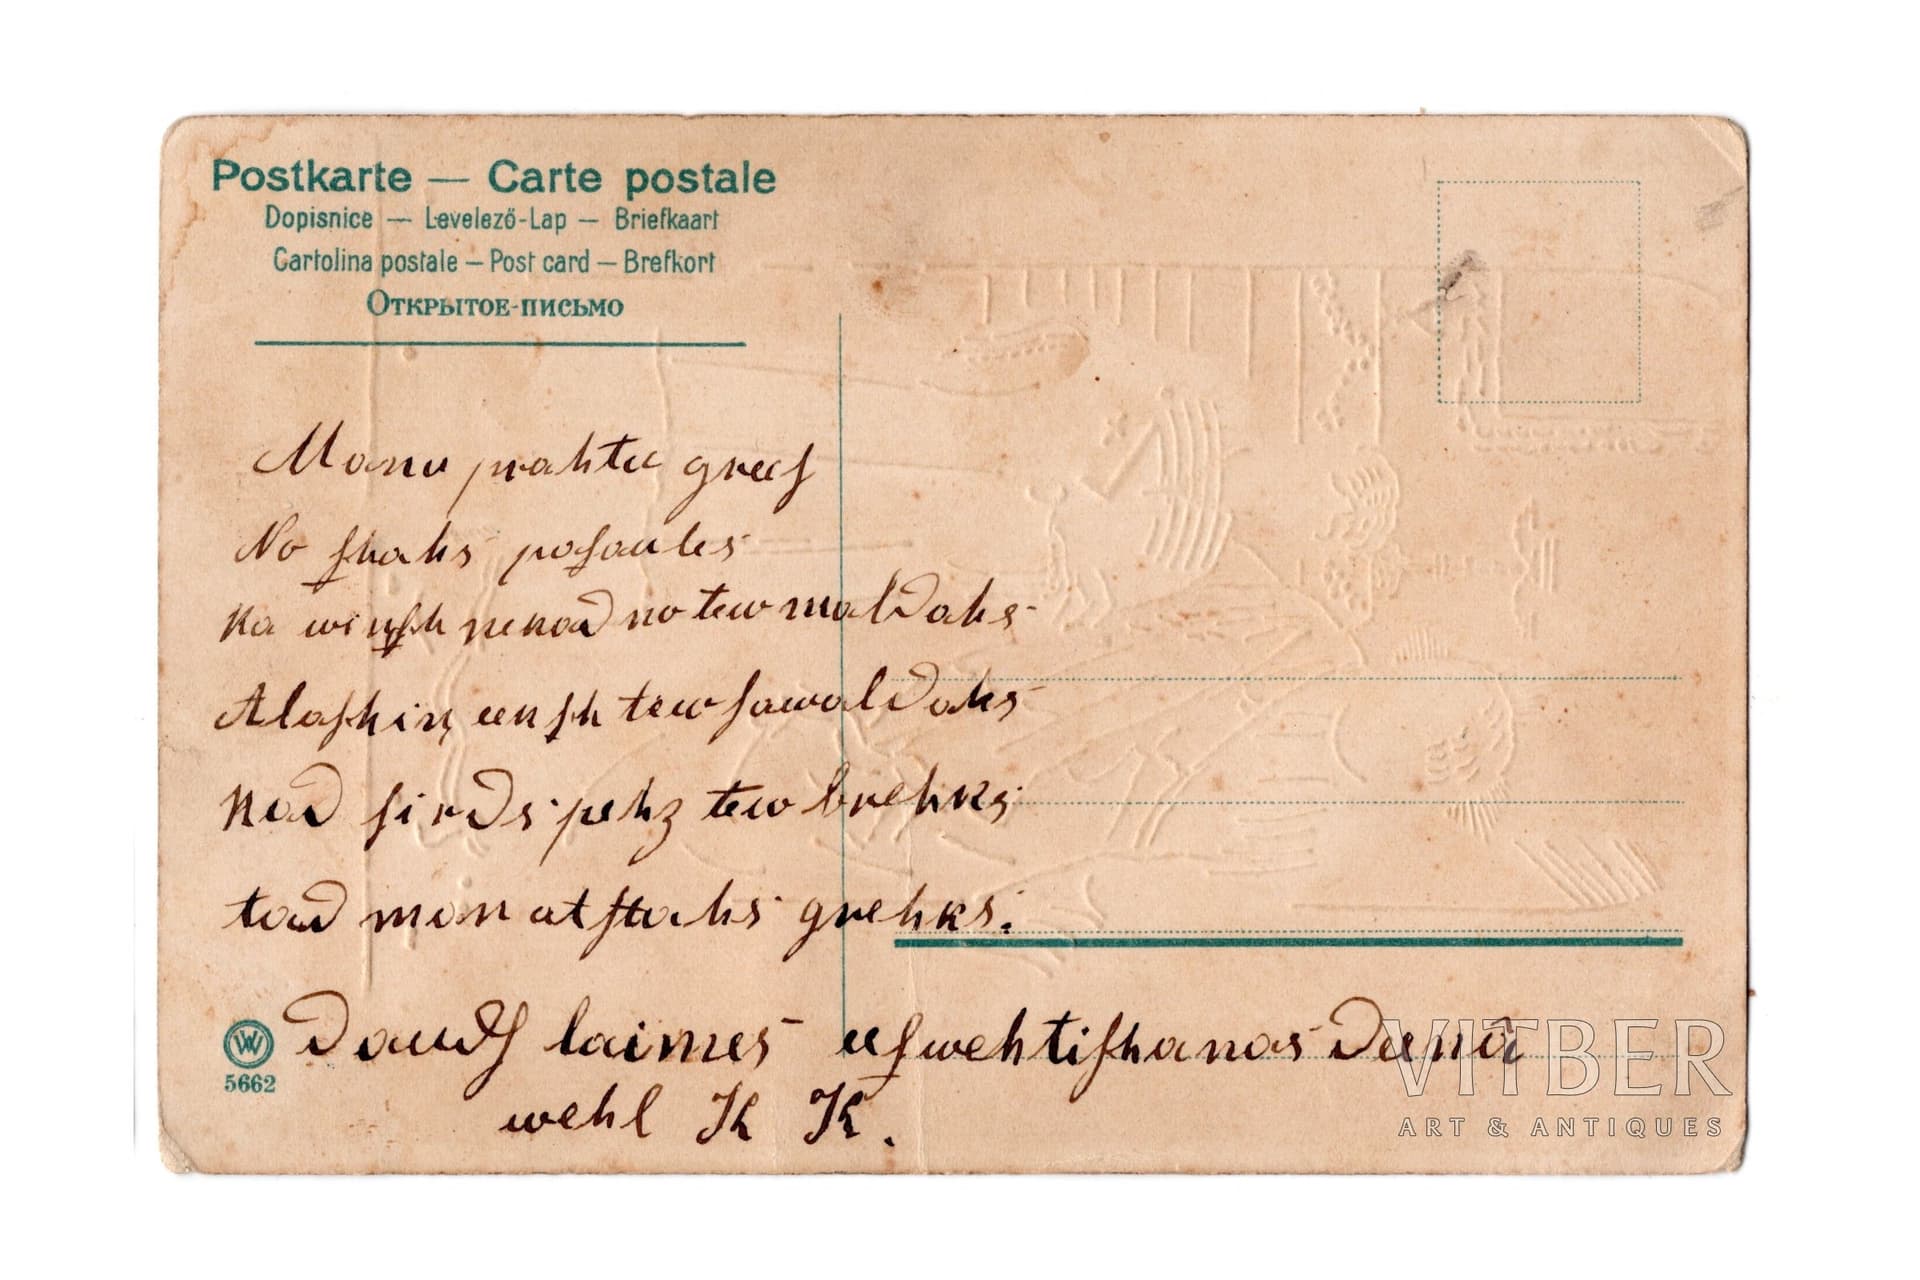 Postkarte — Carte postale
Dopisnice — Levelező-Lap — Briefkaart
Cartolina postale – Post card – Brefkort
Открытое-письмо
Manu prahtu greeſ
No ſhahs paſaules
ka wiņſh nekad no tew maldahs
Alaſhiņ eenſh tew ſawaldahs
Kad ſirds pehz tew brehks
tad man atſtahs grehks.
Daudſ laimes eeſwehtiſhanas deenā
wehl K K.
W
5662
VITBER
ART & ANTIQUES